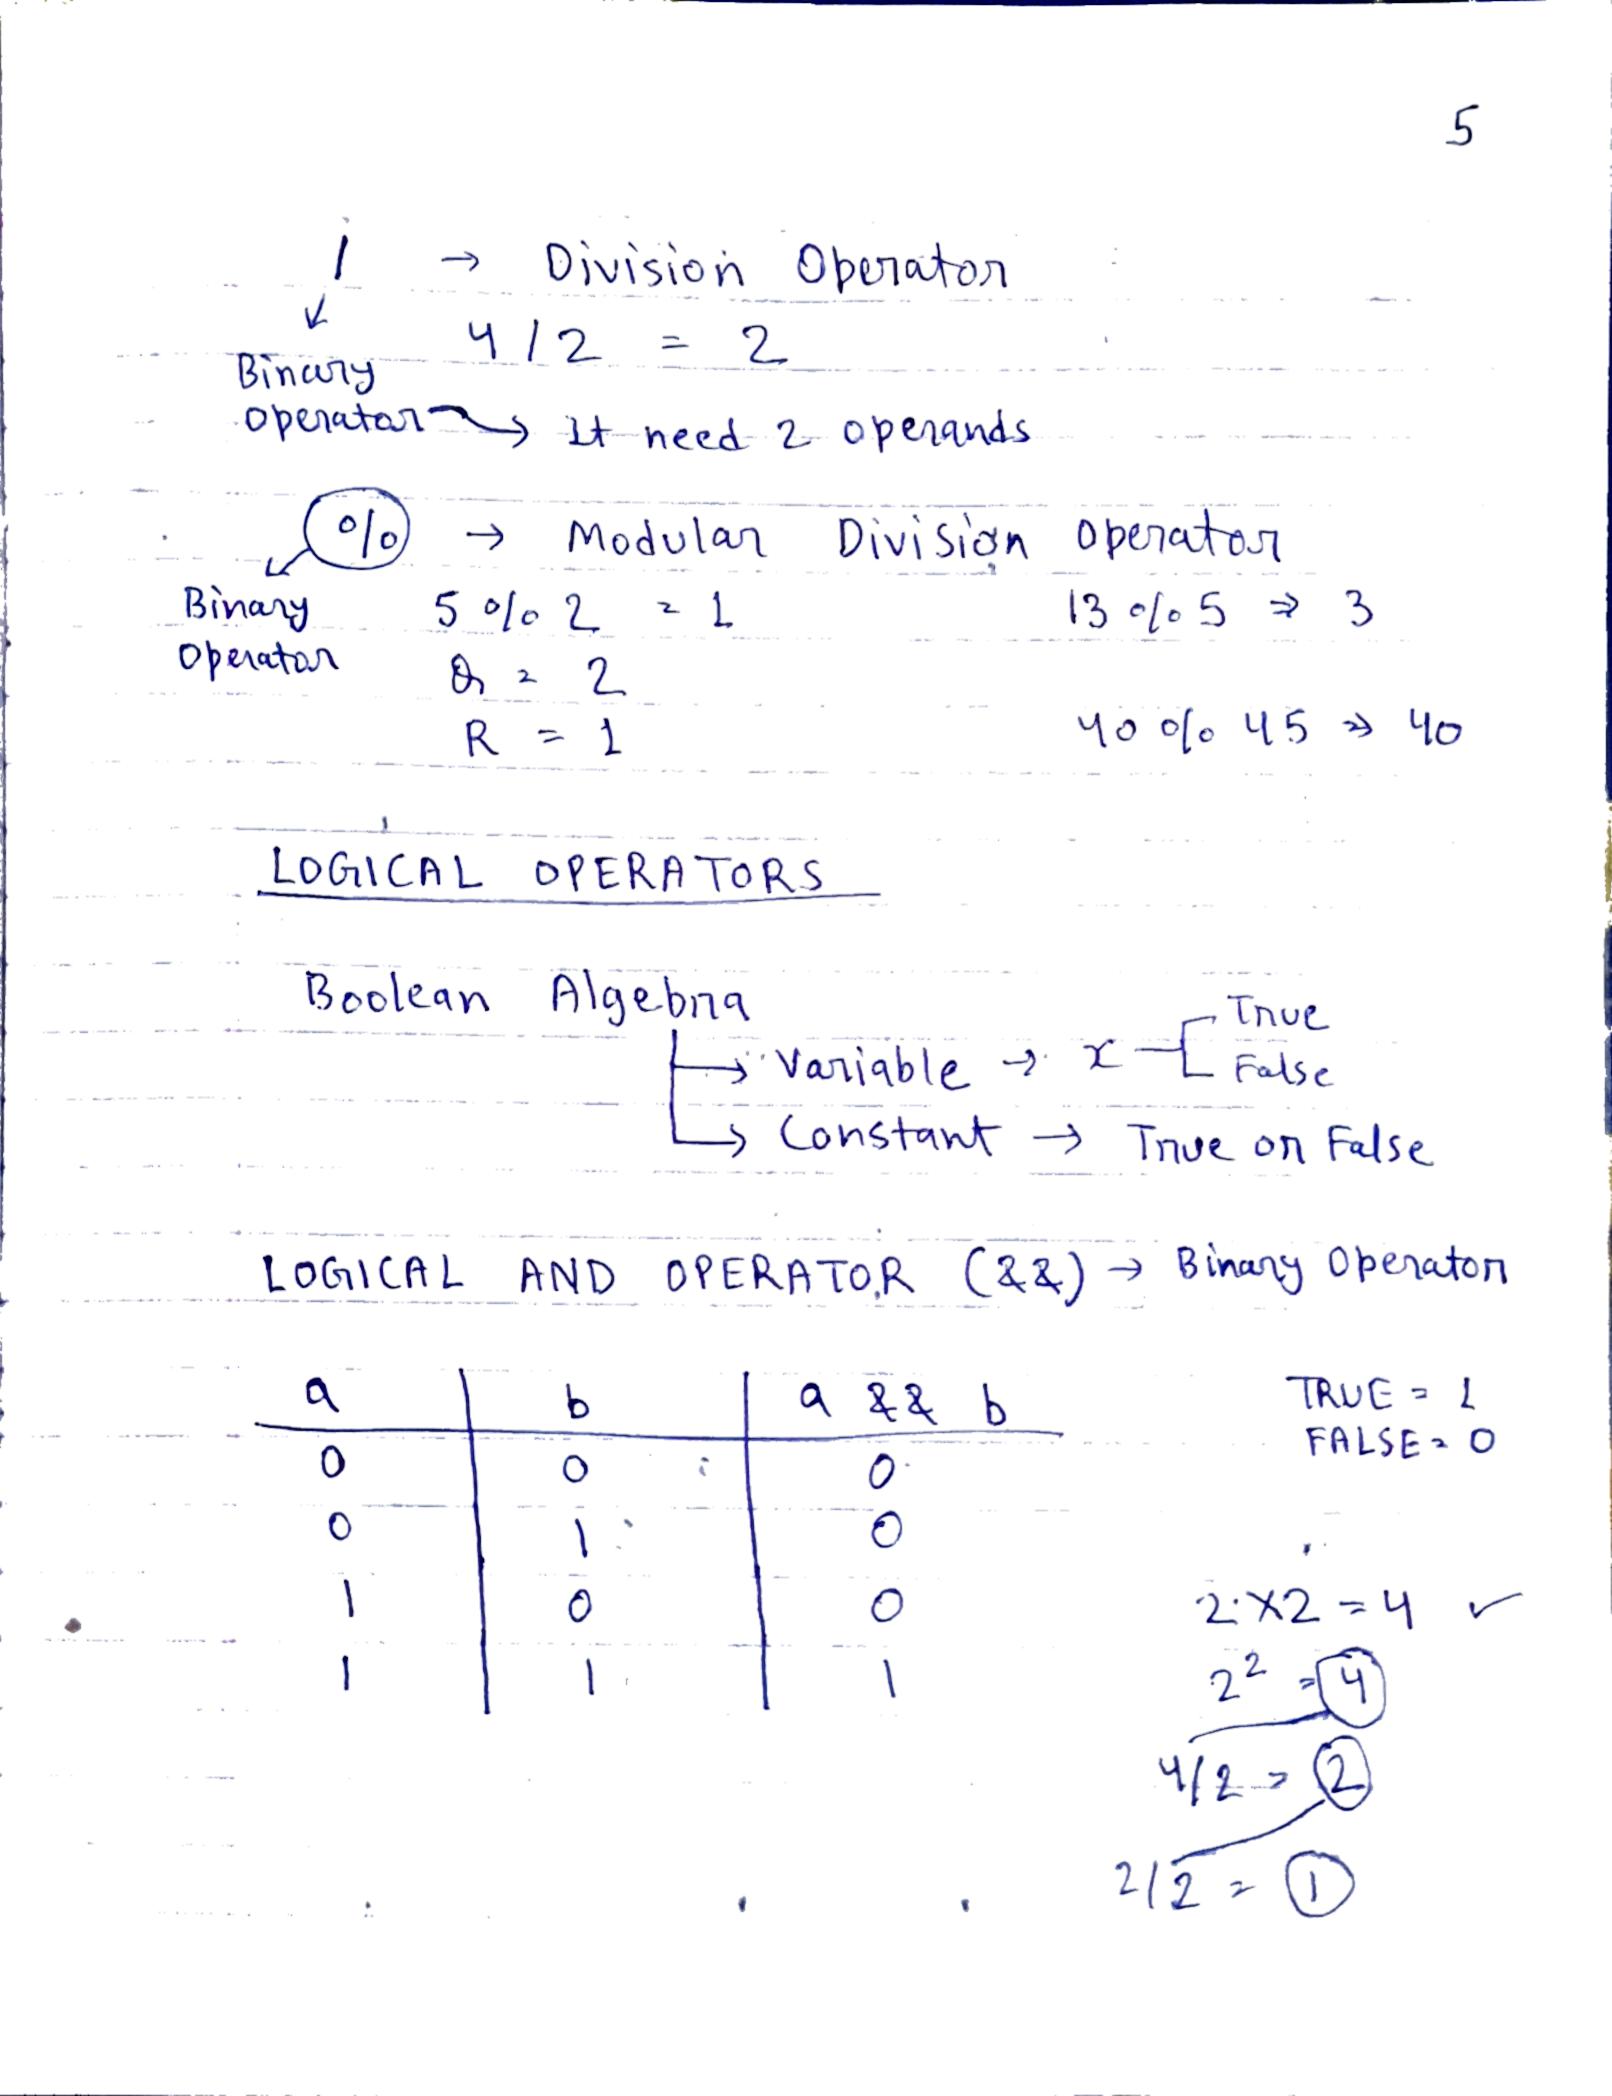 5
/ → Division Operator
4/2 = 2
Binary
Operator → It need 2 operands
% → Modular Division Operator
Binary 5 % 2 = 1 13 % 5 ⇒ 3
Operator Q = 2
R = 1 40 % 45 ⇒ 40
LOGICAL OPERATORS
Boolean Algebra
→ Variable → x True
False
→ Constant → True or False
LOGICAL AND OPERATOR (&&) → Binary Operator
a b a && b TRUE = 1
FALSE = 0
0 0 0
0 1 0
1 0 0
1 1 1
2×2 = 4 ✓
2² = 4
4/2 = 2
2/2 = 1